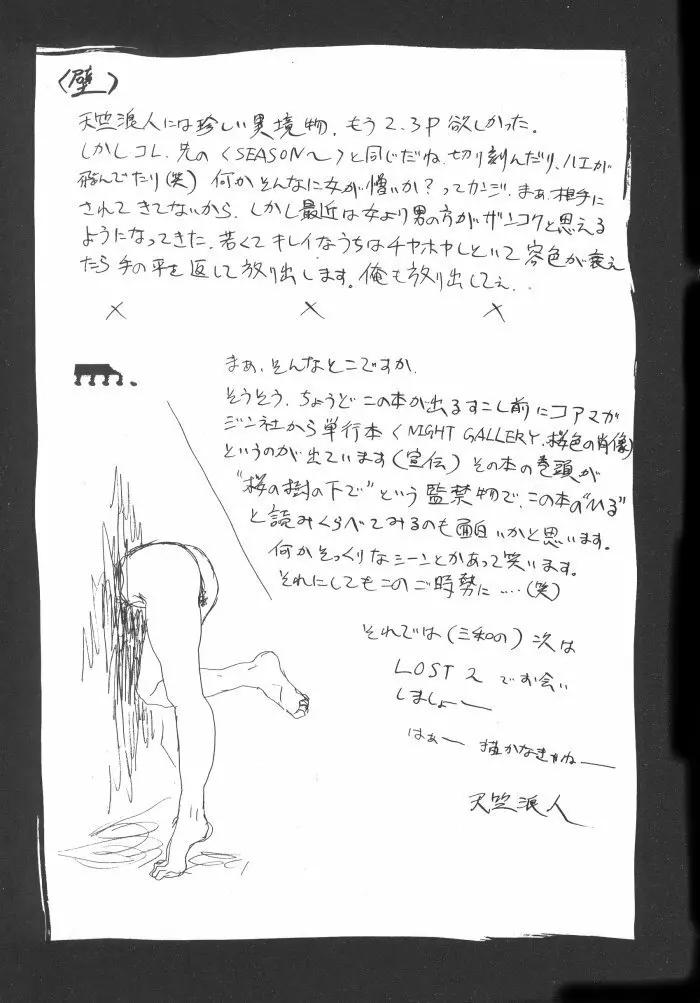 〈壁〉
天竺浪人には珍しい異境物、もう2、3P欲しかった。
しかしコレ、先の〈SEASON〜〉と同じだね、切り刻んだり、ハエが
飛んでたり(笑) 何かそんなに女が憎いか?ってカンジ、まあ、相手に
されてきてないから、しかし最近は女より男の方がザンコクと思える
ようになってきた、若くてキレイなうちはチヤホヤしといて容色が衰え
たら手の平を返して放り出します。俺も放り出してえ、、
× × ×
まぁ、そんなとこですか、
そうそう、ちょうどこの本が出るすこし前にコアマガ
ジン社から単行本〈NIGHT GALLERY、桜色の肖像〉
というのが出ています(宣伝) その本の巻頭が
“桜の樹の下で”という監禁物で、この本の“いる”
と読みくらべてみるのも面白いかと思います。
何かそっくりなシーンとかあって笑います。
それにしてもこのご時勢に‥‥(笑)
それでは(三和の)次は
LOST 2 でお会い
しましょー
はぁー 描かなきゃねー
天竺浪人